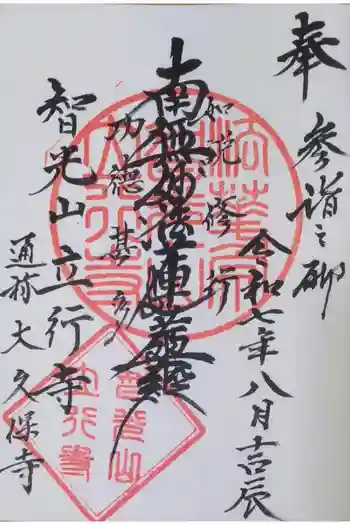 奉
参詣之砌
令和七年八月吉辰
如説修行
南無妙法蓮華経
功徳甚多
智光山立行寺
通称大久保寺